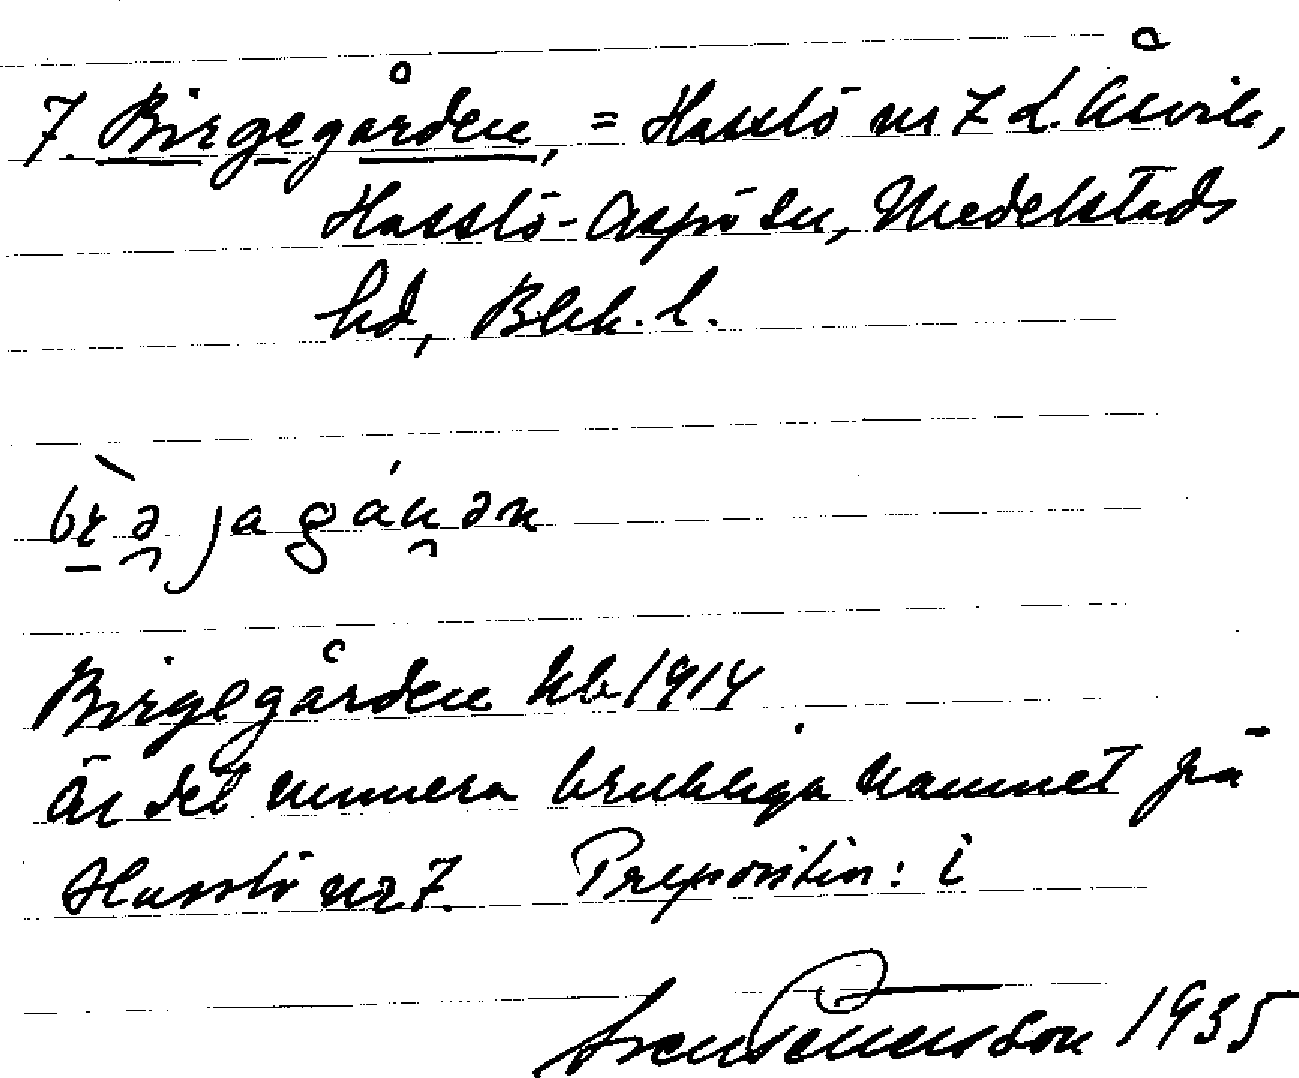 7. Birgegården, = Hasslö nr 7 L. Åsvik,
Hasslö-Aspö sn, Medelstads
hd, Blek. l.
Birgegården kb 1914
Är det numera brukliga namnet på
Hasslö nr 7. Preposition: i
Sven Pettersson 1935